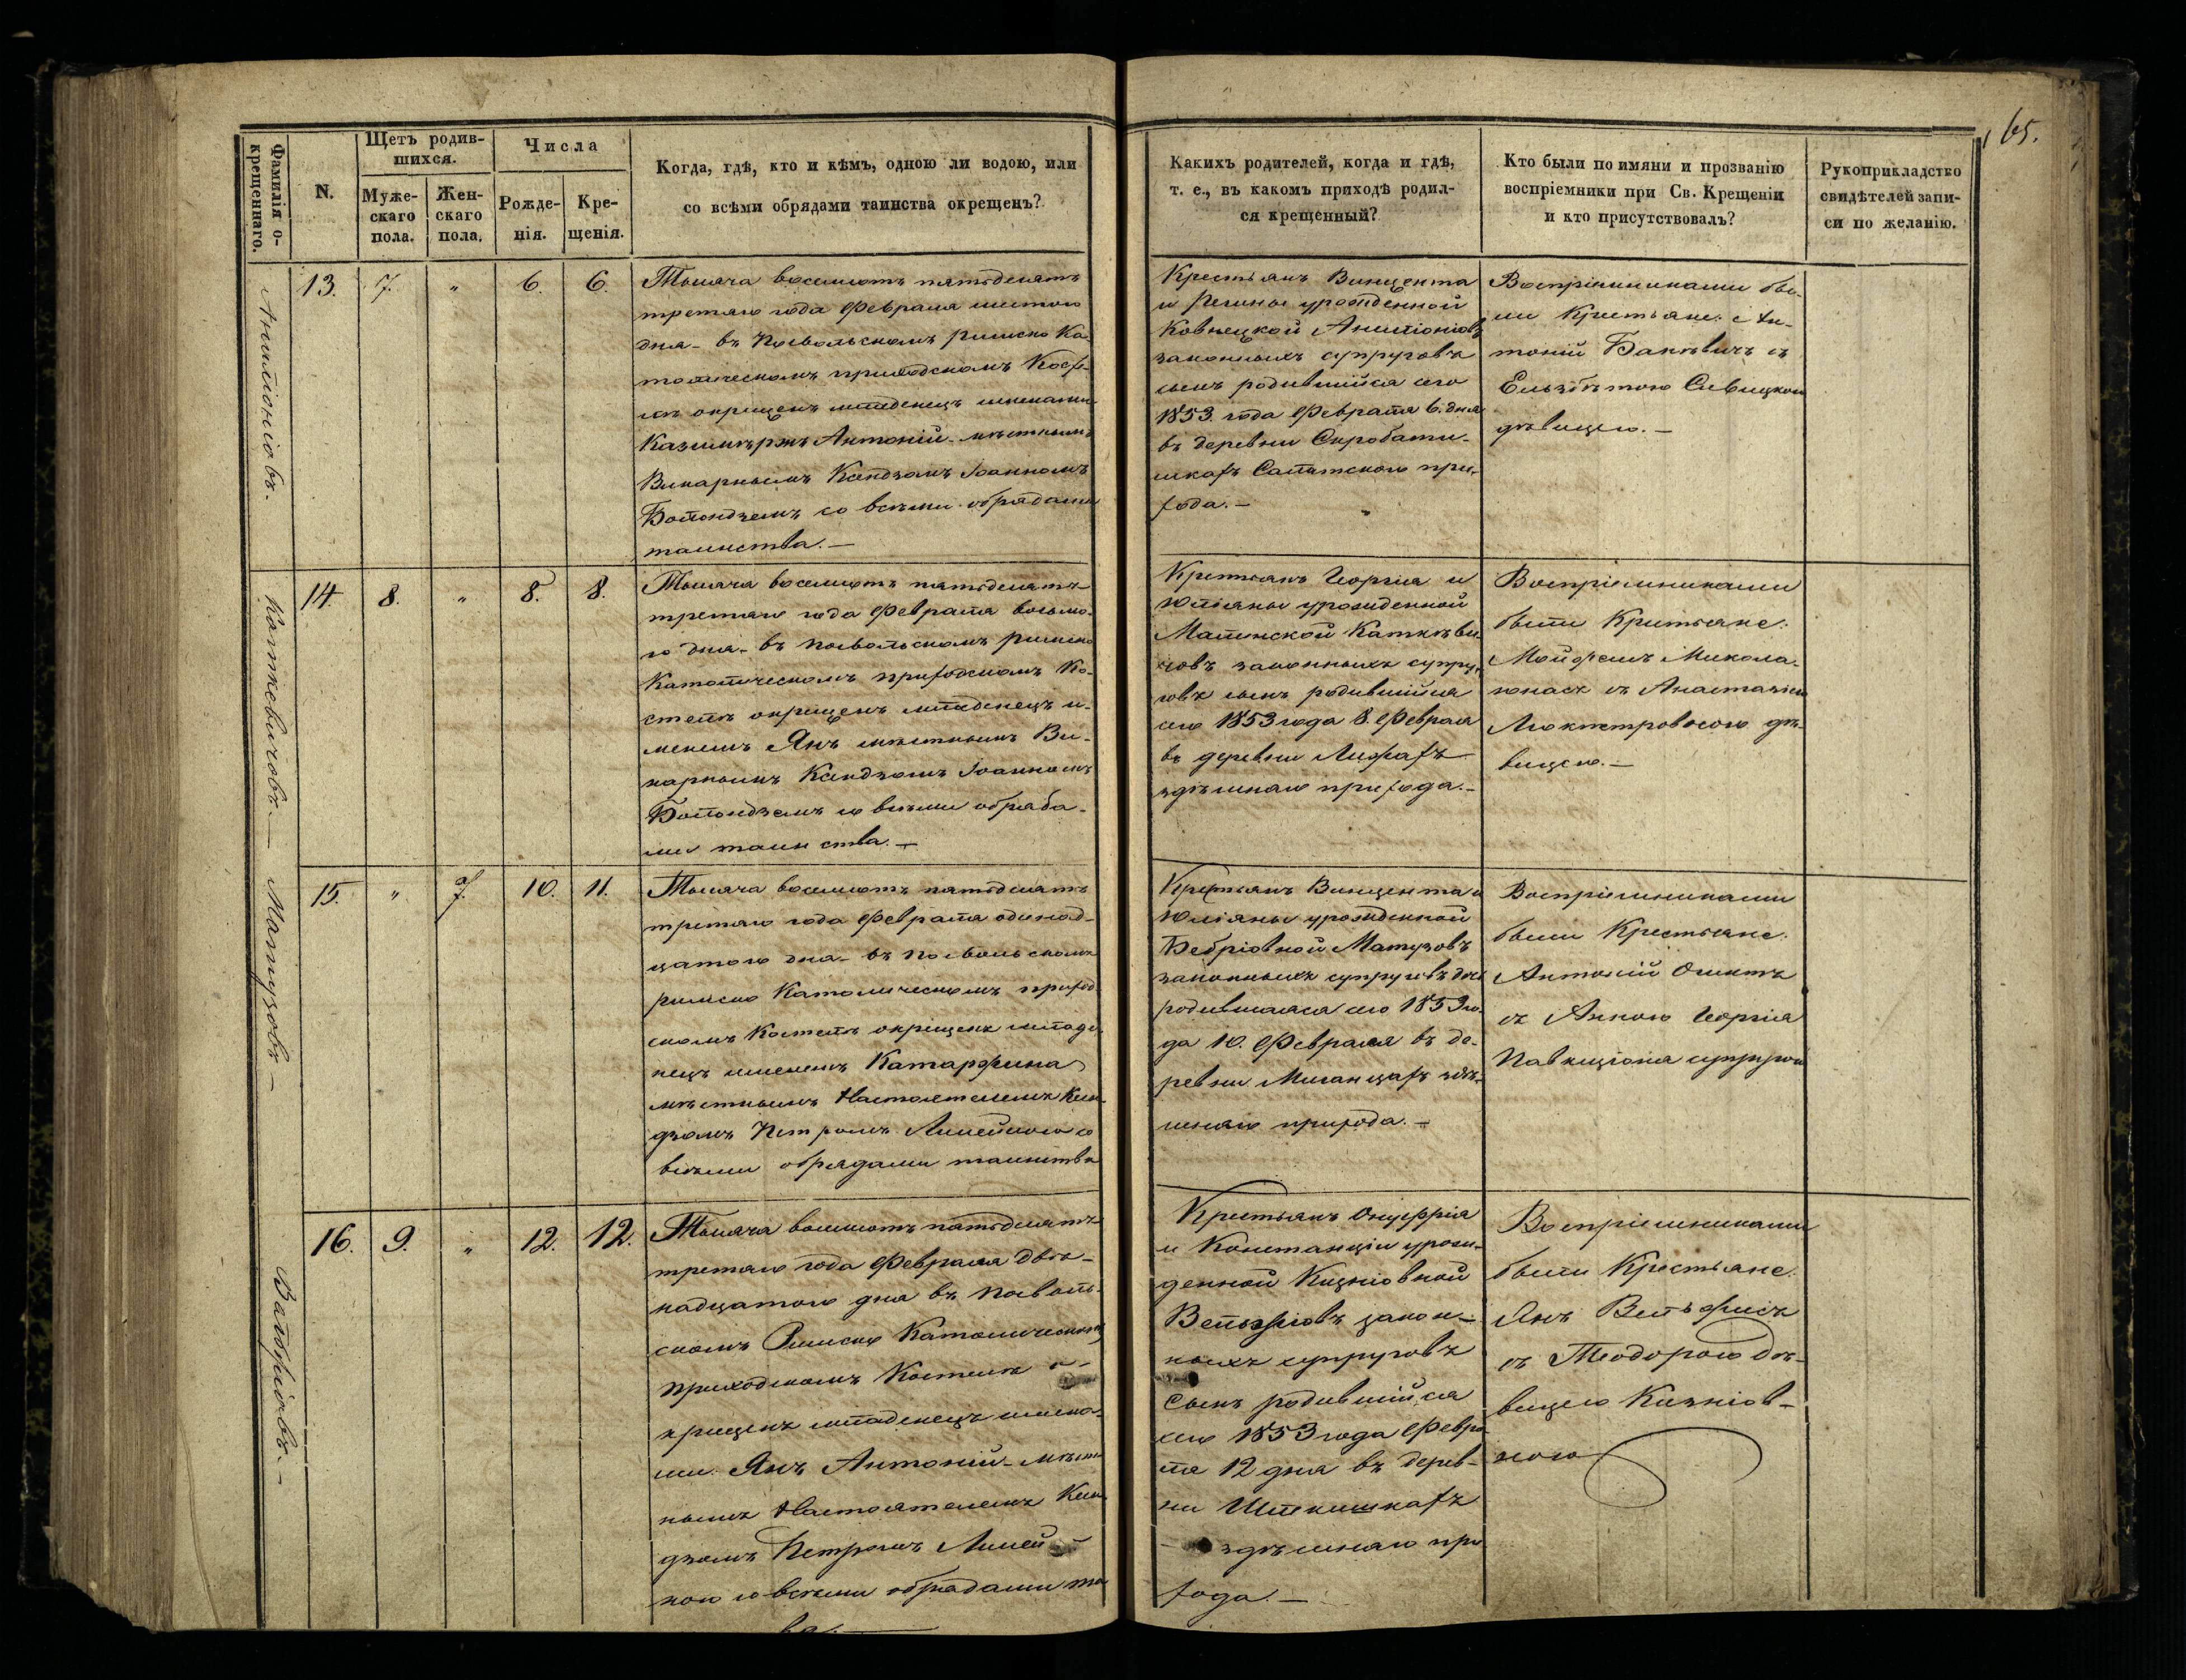 65.
Фамилія о-
крещеннаго.
N.
Щетъ родив-
шихся.
Муже-
скаго
пола.
Жен-
скаго
пола.
Числа
Рожде-
нія.
Кре-
щенія.
Когда, гдѣ, кто и кѣмъ, одною ли водою, или
со всѣми обрядами таинства окрещенъ?
Какихъ родителей, когда и гдѣ,
т. е., въ какомъ приходѣ родил-
ся крещенный?
Кто были по имяни и прозванію
воспріемники при Св. Крещеніи
и кто присутствовалъ?
Рукоприкладство
свидѣтелей запи-
си по желанію.
13. 7. „ 6. 6.
Тысяча восемсотъ пятьдесятъ
третяго года Февраля шестого
дня - въ Посвольскомъ римско Ка-
толическомъ приходскомъ Косте-
лѣ окрещенъ младенецъ именами
Казимѣржъ Антоній - мѣстнымъ
Викарнымъ Ксендзомъ Іоанномъ
со всѣми обрядами
таинства. —
Крестьянъ Винцента
и Регины урожденной
законныхъ супруговъ
сынъ родившійся сего
1853. года Февраля 6. дня
въ деревни
при-
хода. —
Воспріемниками бы-
ли Крестьяне: Ан-
тоній съ
дѣвицею. —
14. 8. „ 8. 8.
Тысяча восемсотъ пятьдесятъ
третяго года Февраля восьмо-
го дня - въ Посвольскомъ римско
Католическомъ приходскомъ Ко-
стелѣ окрещенъ младенецъ и-
менемъ Янъ мѣстнымъ Ви-
карнымъ Ксендзомъ Іоанномъ
со всѣми обряда-
ми таинства. —
Коткевичовъ. —
Крестьянъ Георгія и
Юліяны урожденной
законныхъ супру-
говъ сынъ родившійся
сего 1853 года 8. Февраля
въ деревни
здѣшняго прихода. —
Воспріемниками
были Крестьяне:
съ
дѣ-
вицею. —
15. „ 7. 10. 11.
Тысяча восемсотъ пятьдесятъ
третяго года Февраля одинад-
цатого дня - въ Посвольскомъ
римско Католическомъ приход-
скомъ Костелѣ окрещенъ младе-
нецъ именемъ Катаржина
мѣстнымъ Настоятелемъ Ксен-
дзомъ Петромъ со
всѣми обрядами таинства
Матузовъ —
Крестьянъ Винцента и
Юліяны урожденной
Матузовъ
законныхъ супруговъ дочь
родившаяся сего 1853 го-
да 10. Февраля въ де-
ревни здѣ-
шняго прихода. —
Воспріемниками
были Крестьяне:
Антоній
съ Анною Георгія
супругою
16. 9. „ 12. 12.
Тысяча восемсотъ пятьдесятъ
третяго года Февраля двѣ-
надцатого дня въ Посволь-
скомъ Римско Католическомъ
приходскомъ Костелѣ о-
крещенъ младенецъ имена-
ми Янъ Антоній - мѣст-
нымъ Настоятелемъ Ксен-
дзомъ Петромъ
со всѣми обрядами таи
ва. —
Крестьянъ Онуфрія
и Констанціи урож-
денной
закон-
ныхъ супруговъ
сынъ родившійся
сего 1853 года Февра
ля 12 дня въ дерев-
ни
здѣшняго при
хода. —
Воспріемниками
были Крестьяне:
Янъ
съ Теодорою дѣ-
вицею
ною